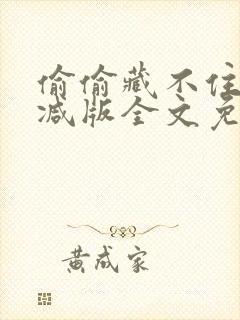 偷偷藏不住
减版全文免
黄成家